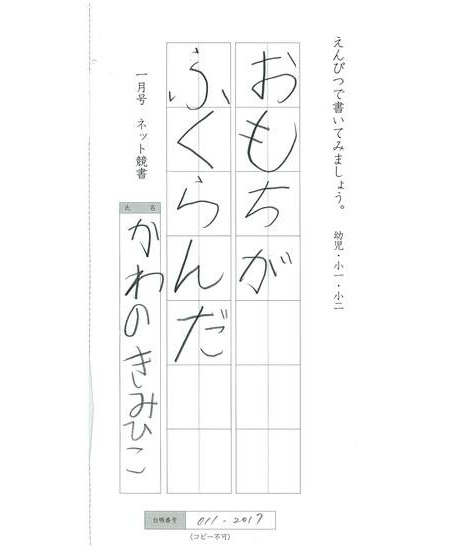 えんぴつで書いてみましょう。 幼児・小一・小二
おもちが
ふくらんだ
一月号 ネット競書
氏名
かわのきみひこ
台帳番号 011-2017
(コピー不可)